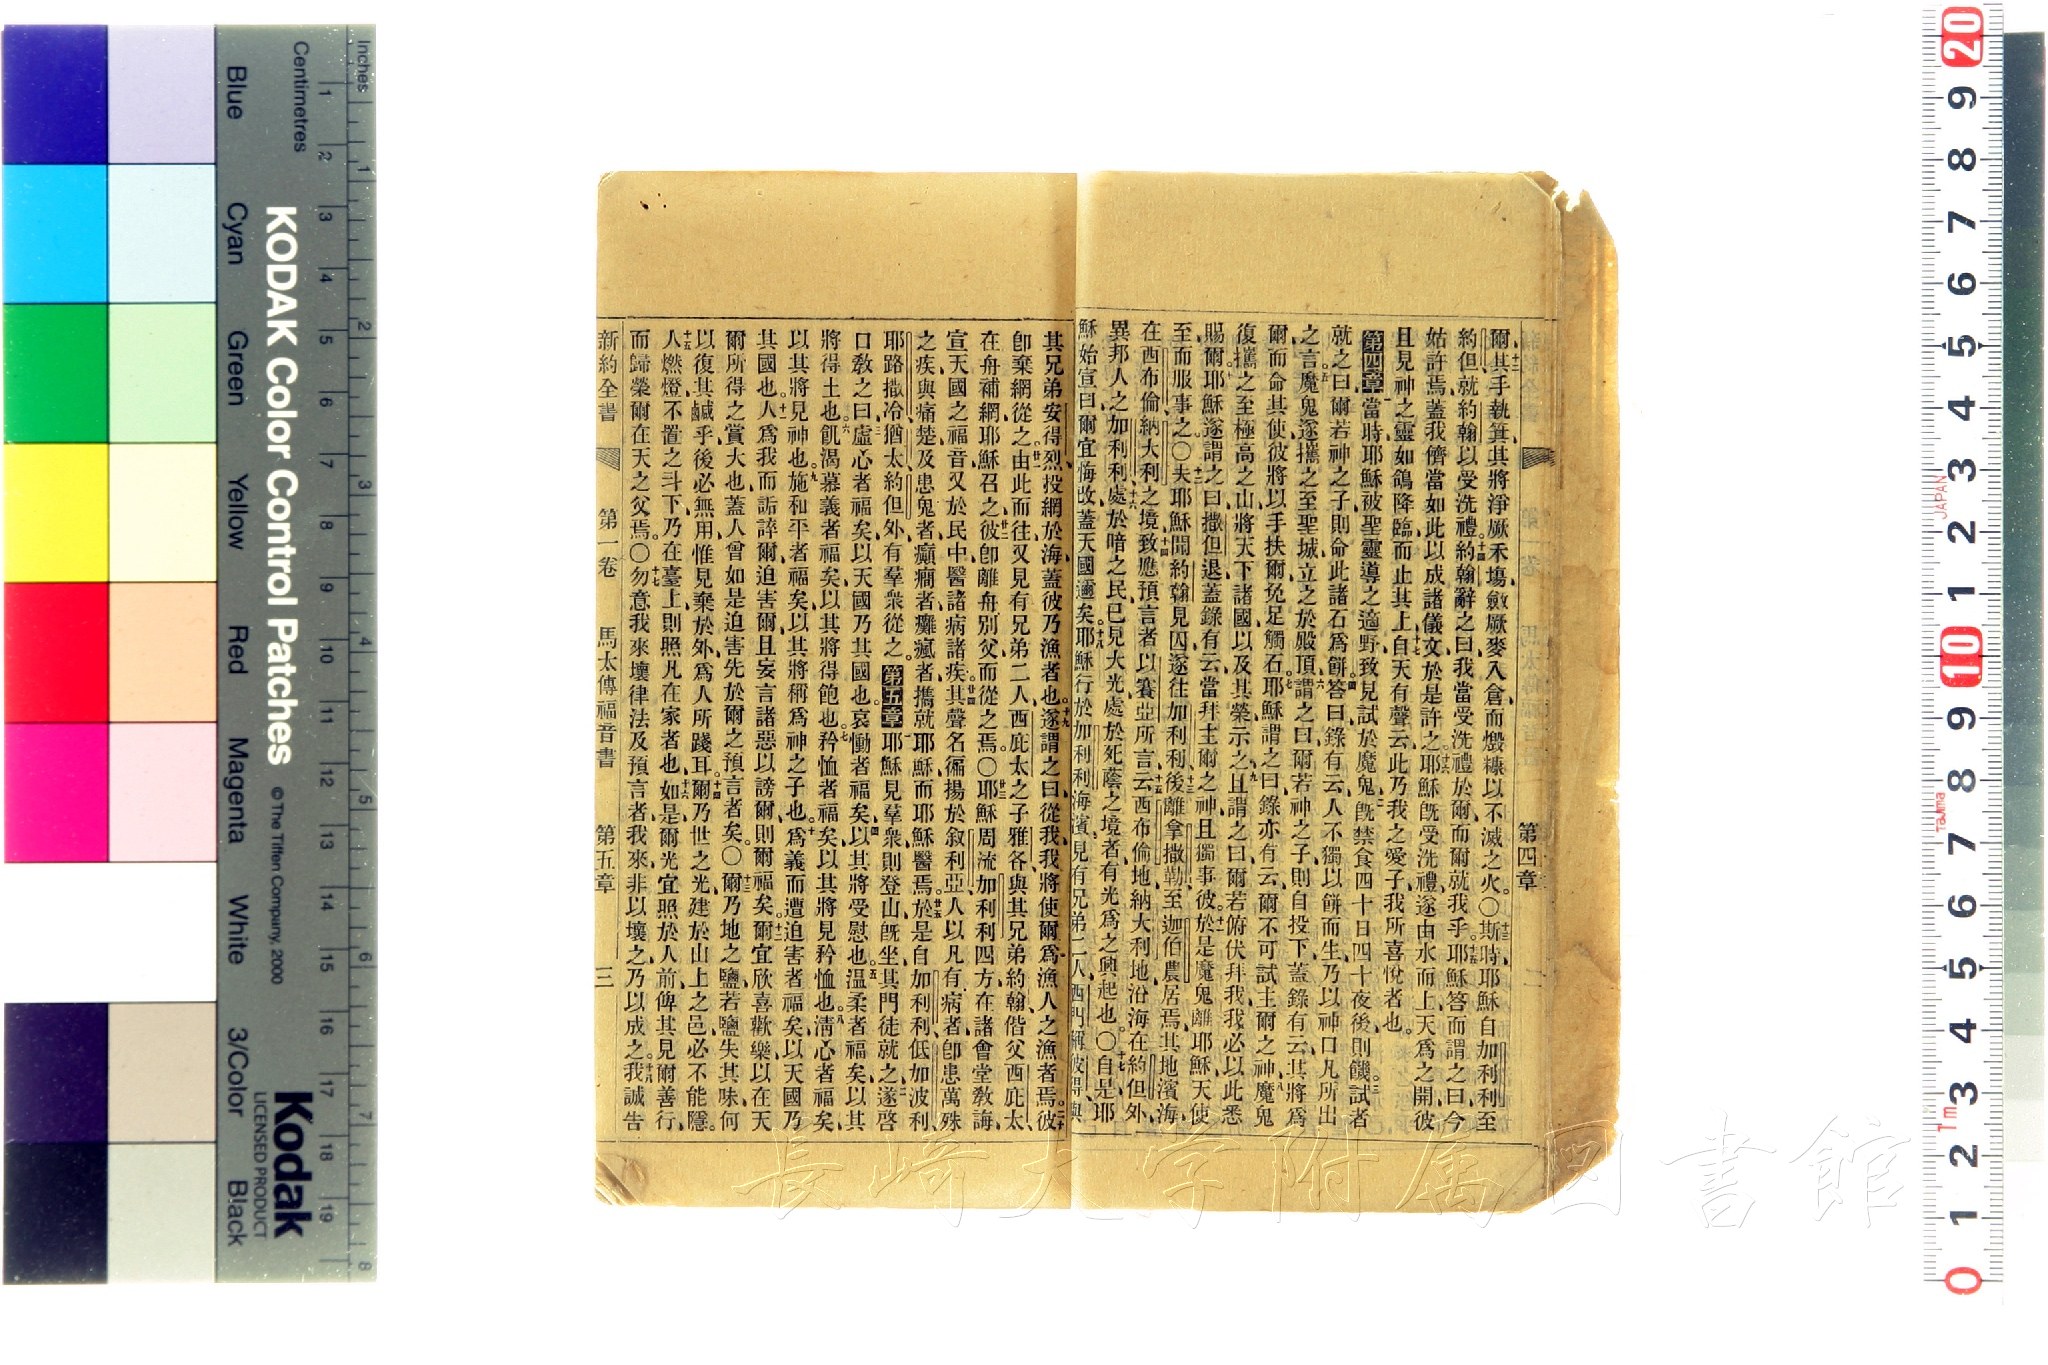 第四章
二
爾其手執箕其將淨厥禾塲斂厥麥入倉而燬糠以不滅之火○斯時耶穌自加利利至
約但就約翰以受洗禮約翰辭之曰我當受洗禮於爾而爾就我乎耶穌答而謂之曰今
姑許焉蓋我儕當如此以成諸儀文於是許之耶穌旣受洗禮遂由水而上天爲之開彼
且見神之靈如鴿降臨而止其上自天有聲云此乃我之愛子我所喜悅者也
第四章當時耶穌被聖靈導之適野致見試於魔鬼旣禁食四十日四十夜後則饑試者
就之曰爾若神之子則命此諸石爲餅答曰錄有云人不獨以餅而生乃以神口凡所出
之言魔鬼遂攜之至聖城立之於殿頂謂之曰爾若神之子則自投下蓋錄有云其將爲
爾而命其使彼將以手扶爾免足觸石耶穌謂之曰錄亦有云爾不可試主爾之神魔鬼
復攜之至極高之山將天下諸國以及其榮示之且謂之曰爾若俯伏拜我我必以此悉
賜爾耶穌遂謂之曰撒但退蓋錄有云當拜主爾之神且獨事彼於是魔鬼離耶穌天使
至而服事之○夫耶穌聞約翰見囚遂往加利利後離拿撒勒至迦伯農居焉其地濱海
在西布倫納大利之境致應預言者以賽亞所言云西布倫地納大利地沿海在約但外
異邦人之加利利處於暗之民已見大光處於死蔭之境者有光爲之興起也○自是耶
穌始宣曰爾宜悔改蓋天國邇矣耶穌行於加利利海濱見有兄弟二人西門稱彼得與
其兄弟安得烈投網於海蓋彼乃漁者也遂謂之曰從我我將使爾爲漁人之漁者焉彼
卽棄網從之由此而往又見有兄弟二人西庇太之子雅各與其兄弟約翰偕父西庇太
在舟補網耶穌召之彼卽離舟別父而從之焉○耶穌周流加利利四方在諸會堂敎誨
宣天國之福音又於民中醫諸病諸疾其聲名徧揚於叙利亞人以凡有病者卽患萬殊
之疾與痛楚及患鬼者癲癎者癱瘋者攜就耶穌而耶穌醫焉於是自加利利低加波利
耶路撒冷猶太約但外有羣衆從之第五章耶穌見羣衆則登山旣坐其門徒就之遂啓
口敎之曰虛心者福矣以天國乃其國也哀慟者福矣以其將受慰也温柔者福矣以其
將得土也飢渴慕義者福矣以其將得飽也矜恤者福矣以其將見矜恤也清心者福矣
以其將見神也施和平者福矣以其將稱爲神之子也爲義而遭迫害者福矣以天國乃
其國也人爲我而詬誶爾迫害爾且妄言諸惡以謗爾則爾福矣爾宜欣喜歡樂以在天
爾所得之賞大也蓋人曾如是迫害先於爾之預言者矣○爾乃地之鹽若鹽失其味何
以復其鹹乎後必無用惟見棄於外爲人所踐耳爾乃世之光建於山上之邑必不能隱
人燃燈不置之斗下乃在臺上則照凡在家者也如是爾光宜照於人前俾其見爾善行
而歸榮爾在天之父焉○勿意我來壞律法及預言者我來非以壞之乃以成之我誠告
新約全書 第一卷 馬太傳福音書 第五章 三
KODAK Color Control Patches
© The Tiffen Company, 2000
Kodak
LICENSED PRODUCT
Inches
Centimetres
Blue
Cyan
Green
Yellow
Red
Magenta
White
3/Color
Black
長崎大学附属図書館
JAPAN
Tajima
Tm